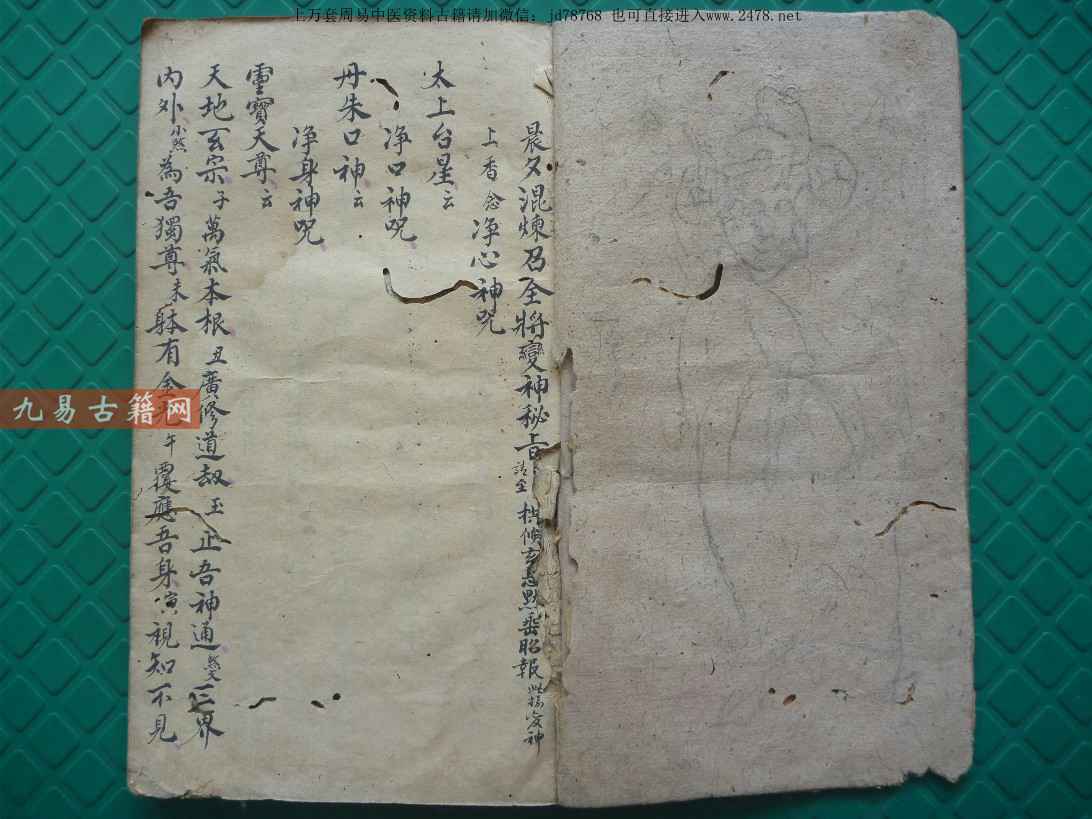 上万套周易中医资料古籍请加微信：jd78768 也可直接进入www.2478.net
晨夕混煉召全將變神秘旨 默垂昭報
上香念淨心神咒
太上台星云
净口神咒
丹朱口神云
净身神咒
靈寶天尊云
天地玄宗子萬氣本根丑廣修道劫 正吾神通 三界
内外 為吾獨尊未躰有金光午覆應吾身 視知不見
九易古籍网